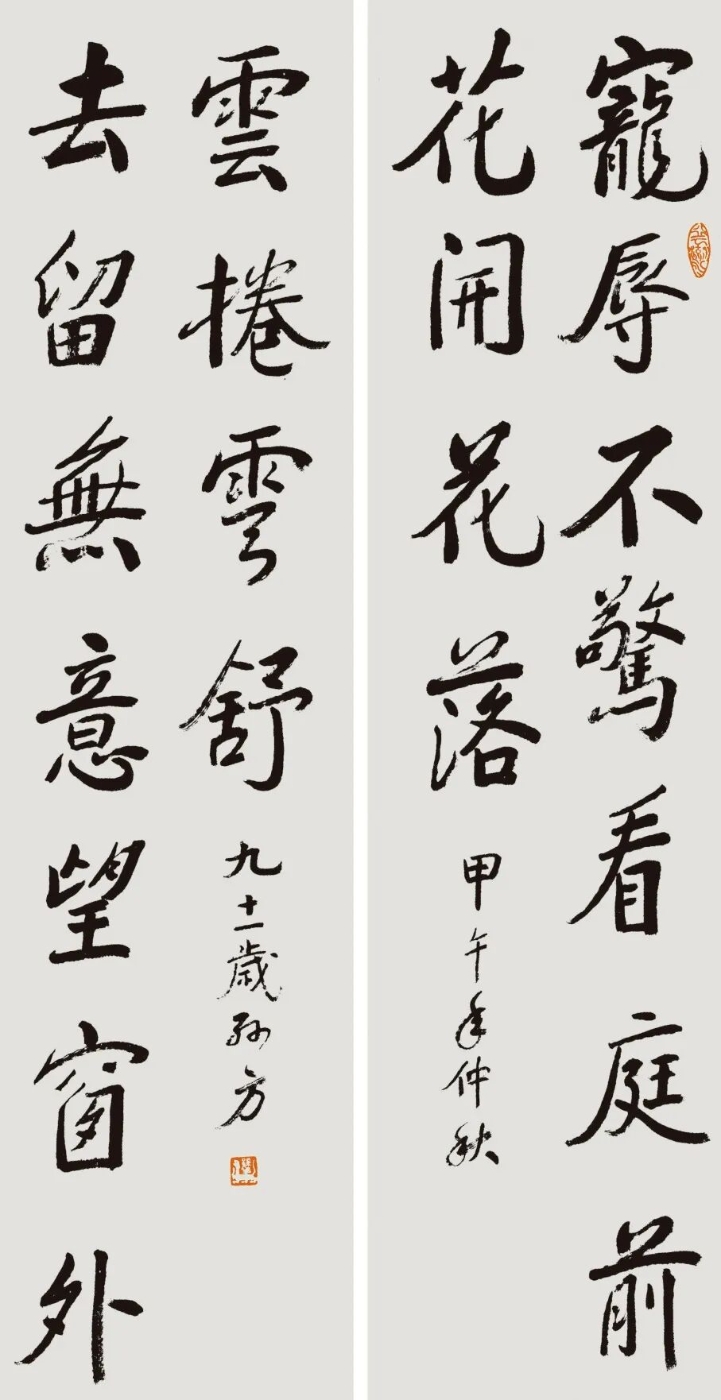 寵辱不驚看庭前
花開花落
甲午年仲秋
去留無意望窗外
雲捲雲舒
九十一歲孫方